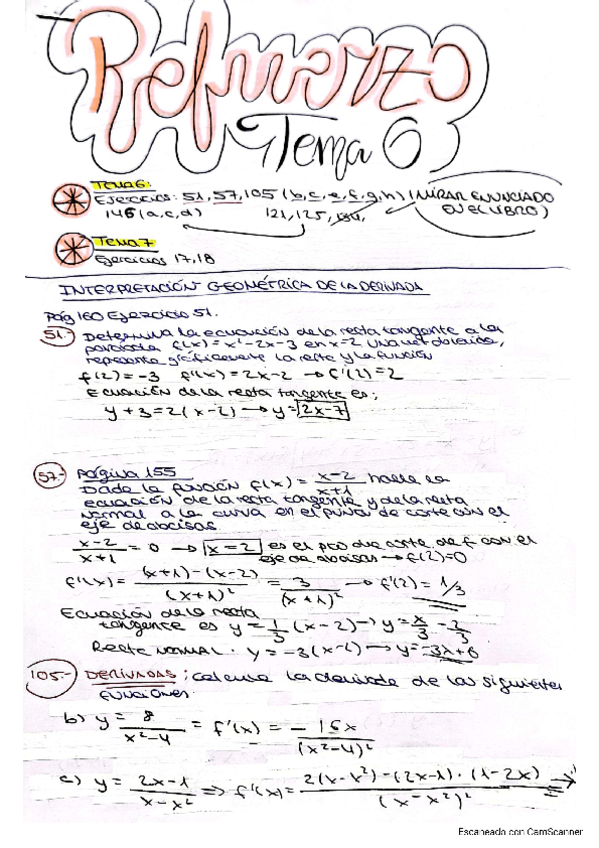 Refuerzo
Tema 6
Tema 6:
Ejercicios: 51, 57, 105 (b, c, e, f, g, h) (MIRAR ENUNCIADO
EN EL LIBRO)
146 (a, c, d) 121, 125,
Tema 7
Ejercicios 17, 18
INTERPRETACIÓN GEOMÉTRICA DE LA DERIVADA
Pág 160 Ejercicio 51.
51.- Determina la ecuación de la recta tangente a la
parábola f(x) = x² - 2x - 3 en x = 2 Una vez obtenida,
represente gráficamente la recta y la función
f(2) = -3 f'(x) = 2x - 2 → f'(2) = 2
Ecuación de la recta tangente es:
y + 3 = 2(x - 2) → y = 2x - 7
57.- Página 155
Dada la función f(x) = x-2/x+1 halle la
ecuación de la recta tangente y de la recta
normal a la curva en el punto de corte con el
eje de abcisas
x-2/x+1 = 0 → x = 2 es el pto de corte de f con el
eje de abcisas → f(2) = 0
f'(x) = (x+1) - (x-2)/(x+1)² = 3/(x+1)² → f'(2) = 1/3
Ecuación de la recta
tangente es y = 1/3 (x - 2) → y = x/3 - 2/3
Recta normal. y = -3(x - 2) → y = -3x + 6
105.- DERIVADAS: calcula la derivada de las siguientes
funciones
b) y = 8/x²-4 = f'(x) = - 16x/(x²-4)²
c) y = 2x-1/x-x² ⇒ f'(x) = 2(x-x²) - (2x-1)·(1-2x)/(x-x²)² →
Escaneado con CamScanner